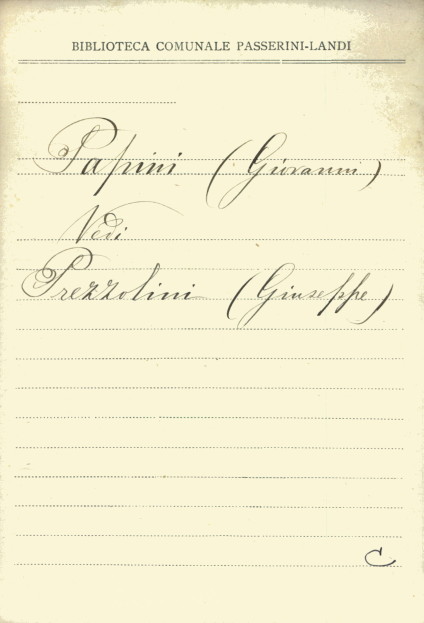 BIBLIOTECA COMUNALE PASSERINI-LANDI
Papini (Giovanni)
Vedi
Prezzolini (Giuseppe)
C